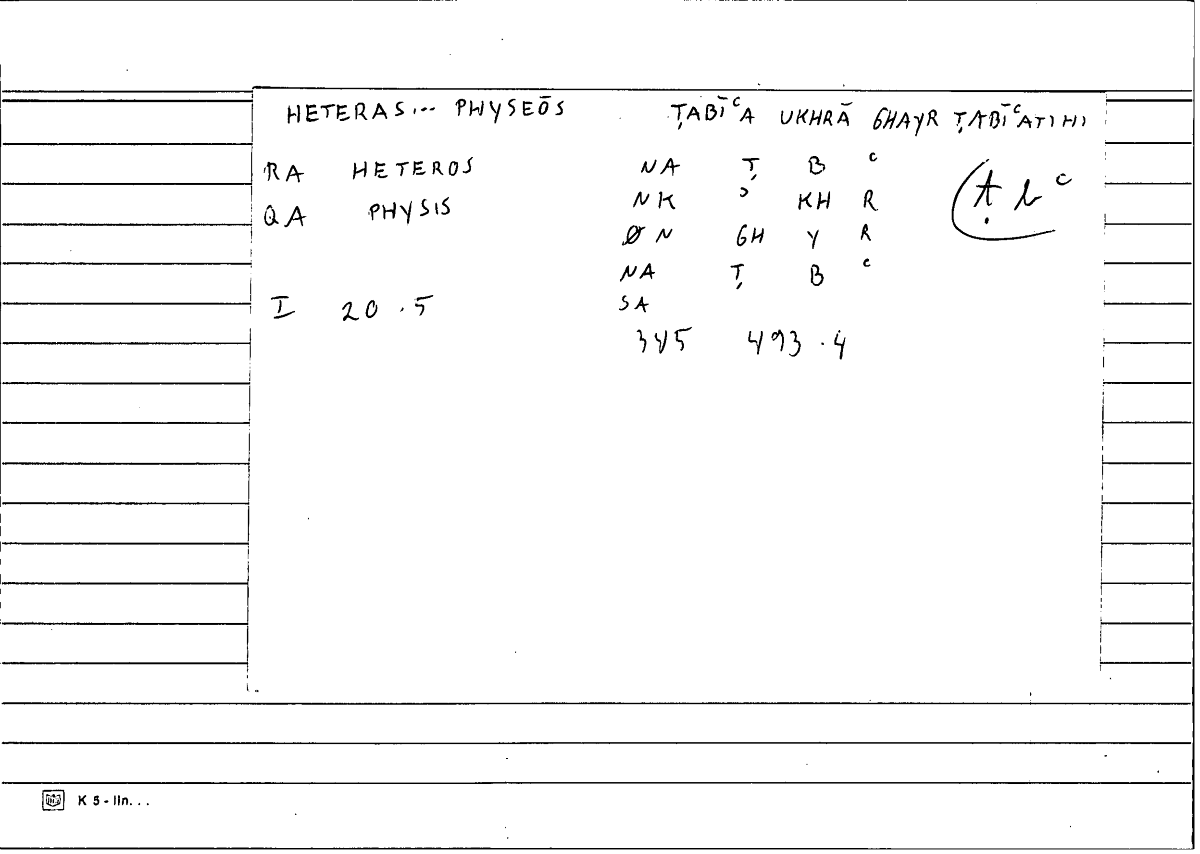 HETERAS... PHYSEŌS ṬABĪᶜA UKHRĀ GHAYR ṬABĪᶜATIHI
RA HETEROS NA Ṭ B ᶜ
QA PHYSIS NK ʾ KH R
ØN GH Y R
NA Ṭ B ᶜ
I 20.5 SA
345 493.4
ṭbᶜ
K 5 - lin...